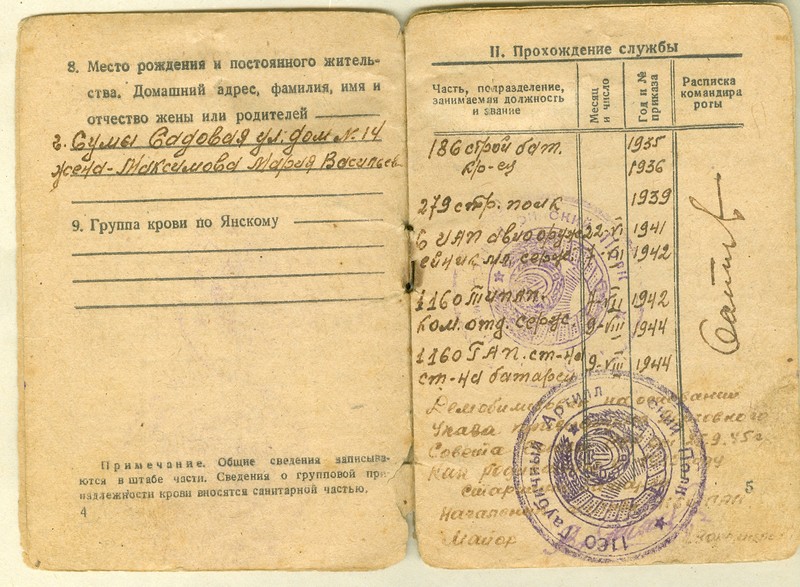 8. Место рождения и постоянного житель-
ства. Домашний адрес, фамилия, имя и
отчество жены или родителей
г. Сумы Садовая ул. дом № 14
жена - Максимова Мария Васильев
9. Группа крови по Янскому
Примечание. Общие сведения записыва-
ются в штабе части. Сведения о групповой при-
надлежности крови вносятся санитарной частью.
4
II. Прохождение службы
Часть, подразделение,
занимаемая должность
и звание
Месяц
и число
Год и №
приказа
Расписка
командира
роты
186 строй бат. 1935
кр-ец 1936
279 стр. полк 1939
6 ИАП авиооруж 22-VI 1941
1942
1160 7-VII 1942
ком. отд. серж. 9-VIII 1944
1160 ГАП. ст-на 9-VIII 1944
ст-на батареи
Демобилизован на основании
Указа
Совета
Майор
1160 Гаубичный Артилл ский Полк
5